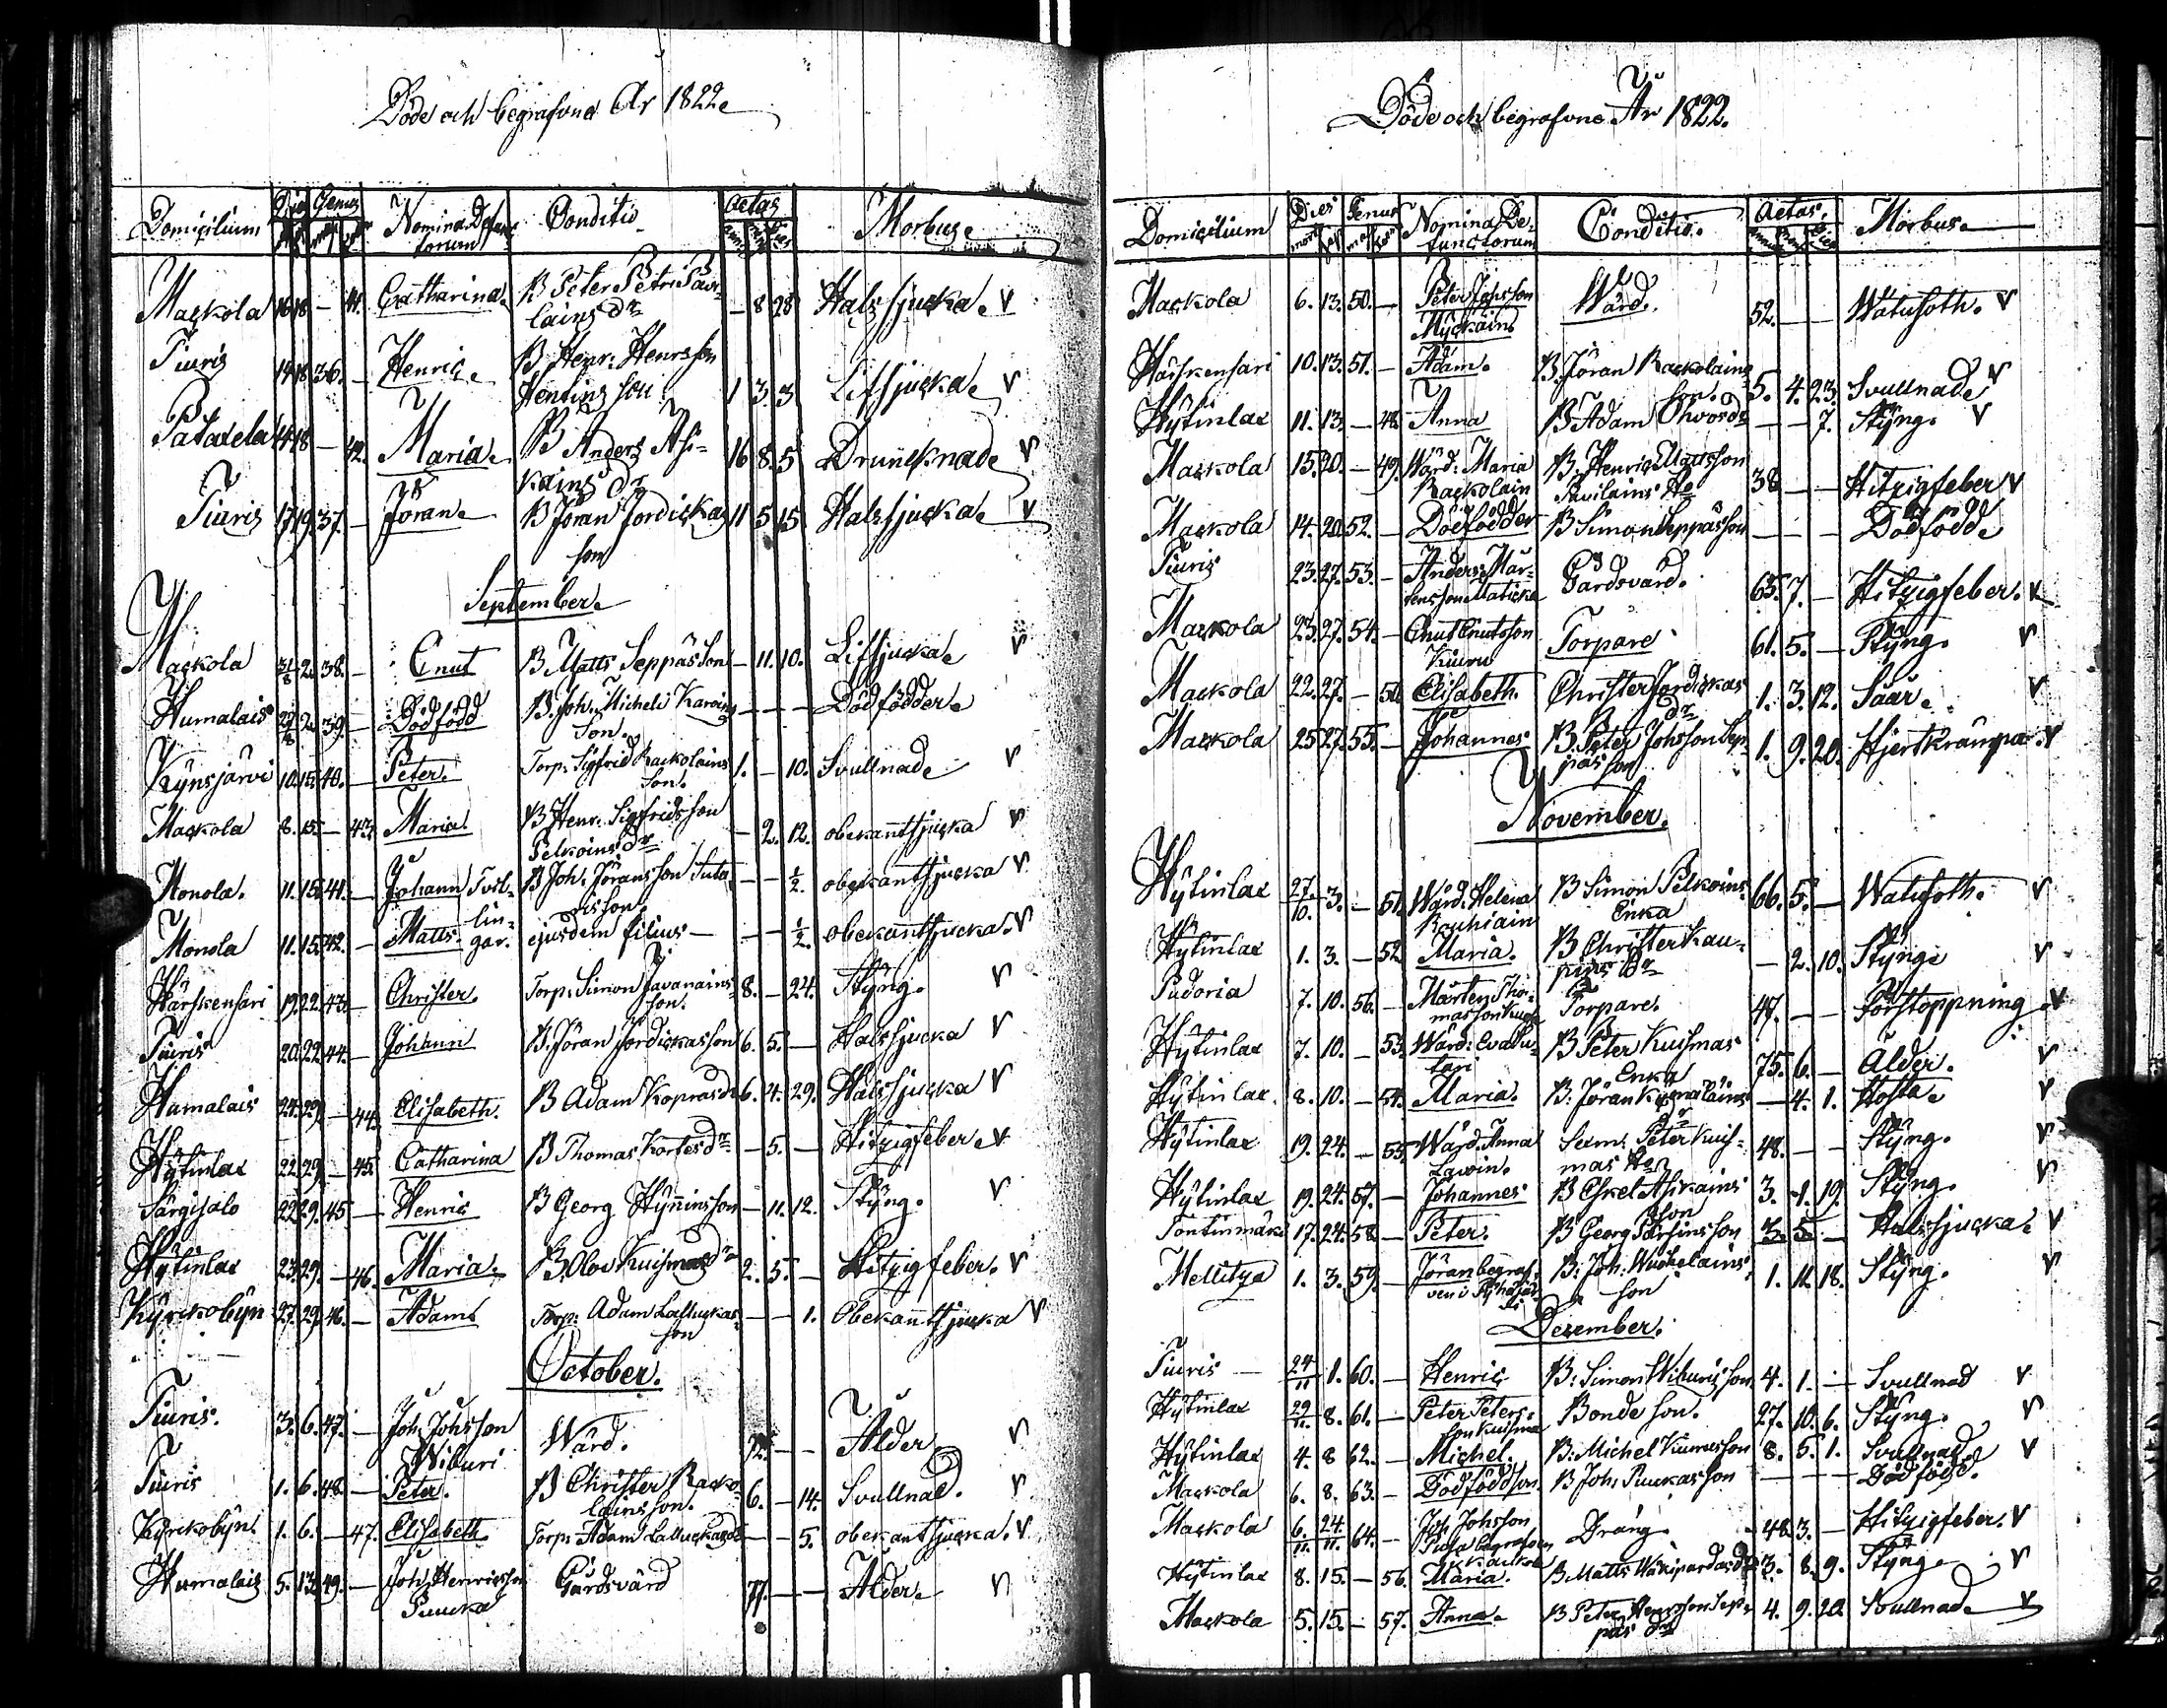 Döde och begrafvne År 1822
Domicilium Dies Genus Nomina Defunctorum Conditio Aetas Morbus
Mackola 16 18 — 41. Catharina B Peter Petri Pavilains dr — 8 28 Halssjucka
Tiuris 14 18 36. — Henric B Henr: Henrsson Hentins son 1 3. 3 Lifsjucka
14 18 — 42. Maria B Anders Asikains dr 16 8. 5 Drunknade
Tiuris 17 19. 37. — Jöran B Jöran Jordickas son 11 5 15 Halssjucka
September
Mackola 31/8 2. 38. — Cnut B Matts Seppäs Son — 11. 10. Lifsjucka
Humalais 2. 39. — Dödfödd B. Joh: Micheli Karvins Son. — — — Dödfödder
Kynsjärvi 10. 15. 40. — Peter. Torp: Sigfrid Rackolains Son. 1. — 10. Svullnad
Mackola 8. 15. — 43. Maria B Henr. Sigfridsson Pelkoins dr — 2. 12. obekantsjucka
Monola. 11. 15. 41. — Johann Tvil- B Joh: Jöransson Suta- — — ½. obekantsjucka
Monola 11. 15. 42. — Matts lingar. ejusdem filius — — — ½. obekantsjucka.
Härskensari 19. 22. 43. — Christer. Torp: Simon Javanains son. 8. — 24. Styng.
Tiuris 20. 22. 44. — Johann B. Jöran Jordickas son 6. 5. — Halssjucka
Humalais 24. 29. — 44. Elisabeth. B Adam Kopras dr 6. 4. 29. Halssjucka
Hytinlax 22. 29. — 45. Catharina B Thomas Kortes dr — 5. — Hitzigfeber
Särgisalo 22. 29. 45 — Henric B Georg Hynnins son — 11. 12. Styng.
Hytinlax 23. 29. — 46. Maria. B. Olov Kuismas dr 2. 5. — Hitzigfeber.
Kyrckobyn 27. 29. 46. — Adam Torp: Adam Lalluckas son — — 1. Obekantsjucka
October.
Tiuris. 3. 6. 47. — Joh: Johsson Wiluri Wärd. 72. — — Ålder
Tiuris 1. 6. 48. — Peter. B Christer Rackolains son. 6. — 14. Svullnad.
Kyrckobyn 1. 6. — 47. Elisabeth Torp: Adam Lalluckas dr — — 5. obekantsjucka.
Humalais 5. 13. 49. — Joh: Henricsson Puucka Gårdsvärd 77. — — Ålder
Döde och begrafvne År 1822.
Domicilium Dies Genus Nomina Defunctorum Conditio. Aetas. Morbus
Mackola 6. 13. 50. — Peter Johsson Myckäin Wärd. 52. — — Watusoth.
Härskensari 10. 13. 51. — Adam. B. Jöran Rackolains son. 5. 4. 23. Svullnad
Hytinlax 11. 13. — 48. Anna B Adam Ohvos dr — — 7. Styng.
Mackola 15. 20. — 49. Wärd: Maria Rackolain B. Henric Mattsson Pavilains Ho 38 — — Hitzigfeber
Mackola 14. 20. 52. — Dödfödder B Simon Seppäs son — — — Dödfödd
Tiuris 23. 27. 53. — Anders Mårtensson Maticka Gårdsvärd. 65. 7. — Hitzigfeber.
Mackola 23. 27. 54. — Cnut Cnutsson Kiuru Torpare 61. 5. — Styng.
Mackola 22. 27. — 50. Elisabeth. Christer Jordickas dr 1. 3. 12. Säär.
Mackola 25 27. 55. — Johannes B. Peter Johsson Seppäs son 1. 9. 20. Hjertkrampa.
November.
Hytinlax 27/10. 3. — 51. Wärd: Helena Rouhiain B Simon Pelkoins Enka 66. 5. — Watusoth.
Hytinlax 1. 3. — 52. Maria. B Christer Kaupins dr — 2. 10. Styng
Pudoria 7. 10. 56. — Mårten Thomasson Torpare. 47. — — Förstoppning.
Hytinlax 7. 10. — 53. Wärd: Eva Sutari B Peter Kuismas Enka 75. 6. — Ålder.
Hytinlax. 8. 10. — 54. Maria. B: Jöran dr — 4. 1. Hosta
Hytinlax 19. 24. — 55. Wärd. Anna Lavoin. Peter Kuismas Ho 48. — — Styng.
Hytinlax 19. 24. 57. — Johannes B Eskel Asikains son 3. 1. 19. Styng.
Tontinmäki 17. 24. 58 — Peter. B Georg Pärsins son 3. 5 — Halssjucka
Mellitza 1. 3. 59. — Jöran begrafven i B: Joh: son 1. 11. 18. Styng.
Dezember.
Tiuris — 24/11 1. 60. — Henric B: Simon Wiluris son 4. 1. — Svullnad
Hytinlax 29/11. 8. 61. — Peter Petersson Kuisma Bonde son. 27. 10. 6. Styng.
Hytinlax 4. 8 62. — Michel. B: Michel son 8. 5. 1. Svullnad
Mackola 6. 8. 63. — Dödfödd son. B Joh: Puuckas son — — — Dödfödd.
Mackola 6./11. 24./11. 64. — Joh. Johsson begrafven Dräng. 48 3. — Hitzigfeber.
Hytinlax 8. 15. — 56. Maria. B Matts dr 3. 8. 9. Styng
Mackola 5. 15. — 57. Anna. B Peter Henrsson Seppäs dr 4. 9. 20 Svullnad